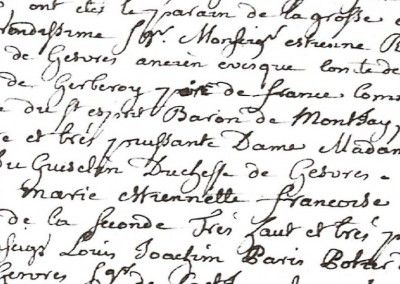 ont etés le parain de la grosse
rendissime Sgr. Monseigr estienne R
de Gesvres ancien evisque comte de
de Gerberoy pair de france Com
du st esprit Baron de Montjay
et très puissante Dame Madam
du Guesclin Duchesse de Gesvres.
marie estiennette francoise
de la seconde Très haut et très p
seigr Louis Joachim Paris Potier
Gesvres Sgr de